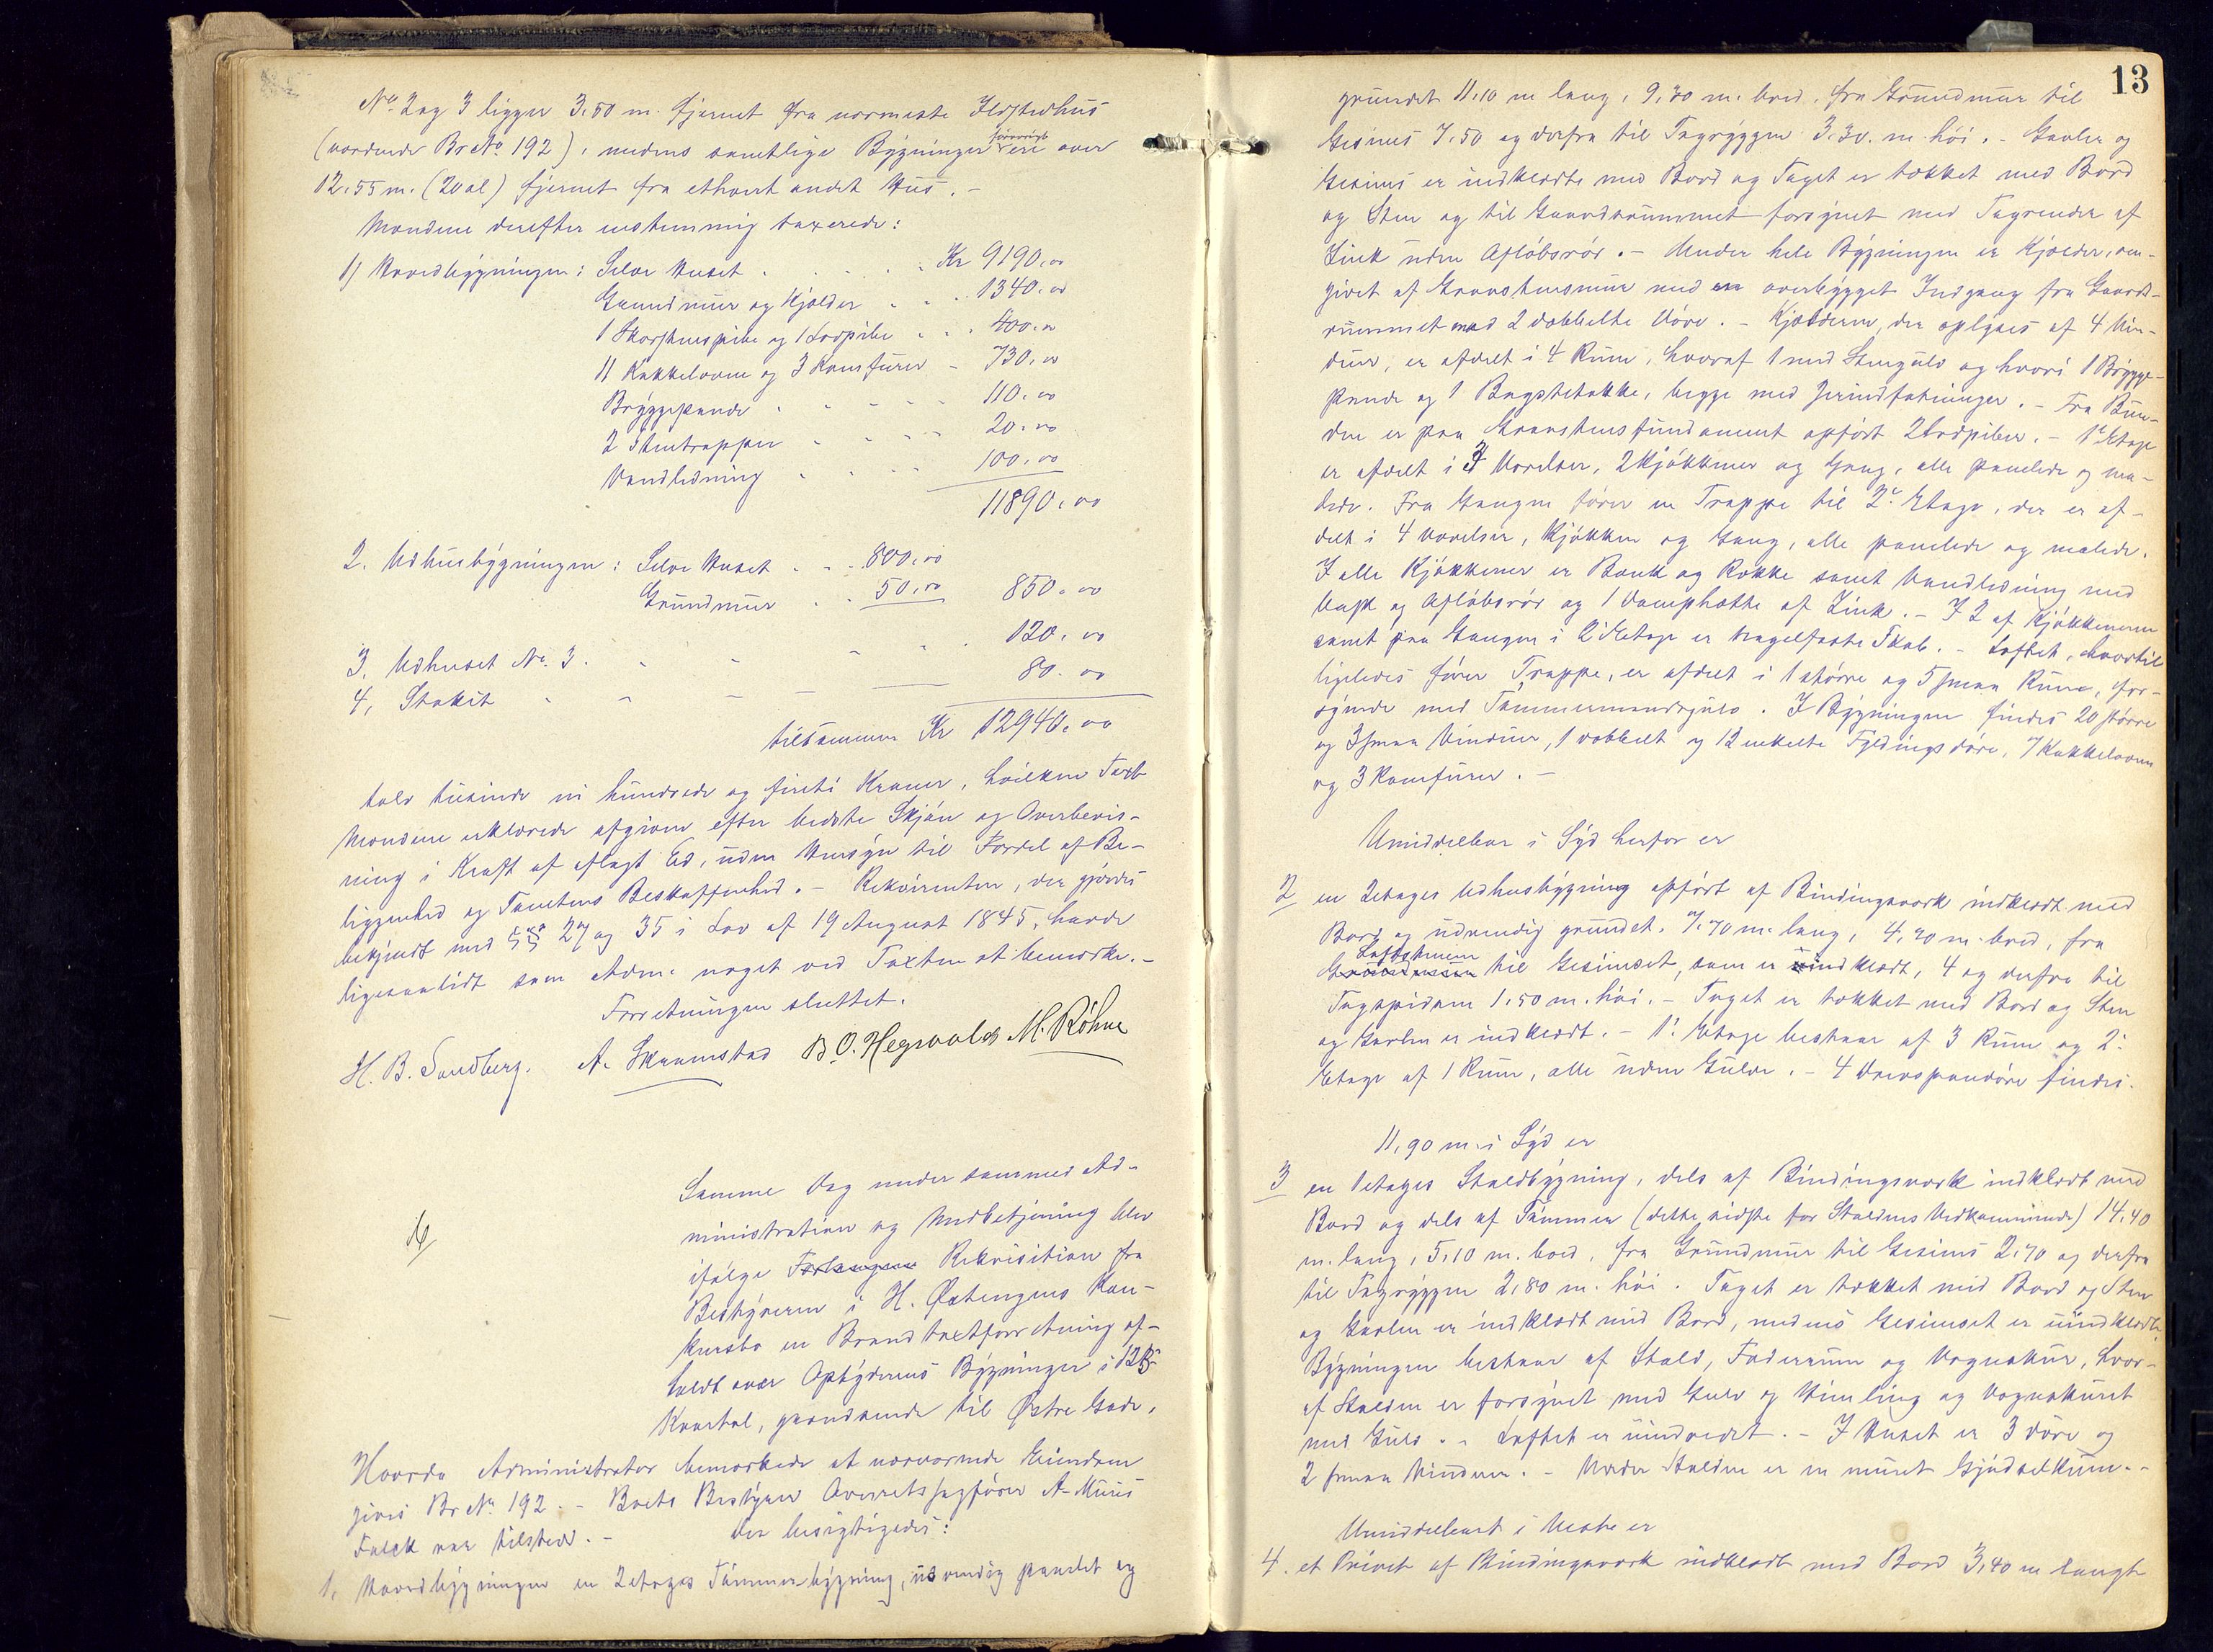 No 2 og 3 ligger 3,50 m. fjernet fra nærmeste Ildstedhus
(værende Br No 192), medens samtlige Bygninger forøvrigt ere over
12,55 m. (20 al) fjernet fra ethvert andet Hus. -
Mændene derefter enstemmig taxerede:
1) Hovedbygningen: Selve Huset . . . . . Kr 9190,00
Grundmur og Kjælder . . . 1340,00
1 Skorstenspibe og 1 Lodpibe . . . 400,00
11 Kakkelovne og 3 Komfurer - 730,00
Bryggepande . . . . . 110,00
2 Stentrapper . . . . 20,00
Vandledning . . . . 100,00
11890,00
2. Udhusbygningen: Selve Huset . . . 800,00
Grundmur . . 50,00 850,00
3. Udhuset No. 3. . . . . . 120,00
4, Stakit . . . . 80,00
tilsammen Kr 12940,00
tolv tusinde ni hundrede og firti Kroner, hvilken Taxt
Mændene erklærede afgiven efter bedste Skjøn og Overbevis-
ning i Kraft af aflagt Ed, uden Hensyn til Fordel af Be-
liggenhed og Tomtens Beskaffenhed. - Rekvirenten, der gjordes
bekjendt med §§ 27 og 35 i Lov af 19 August 1845, havde
ligesaalidt som Adm. noget ved Taxten at bemærke. -
Forretningen sluttet.
H. B. Sandberg. A. Skramstad B. O. Hegvold M. Röhne
Samme Dag under sammes Ad-
ministration og Medbetjening blev
ifølge Forlangen Rekvisition fra
Bestyreren i H. Østengens Kon-
kursbo en Brandtaxtforretning af-
holdt over Opbydernes Bygninger i 12
Kvartal, grændsende til Østre Gade,
Hvorda Administrator bemærkede at nærværende Eiendom
gives Br No. 192. - Boets Bestyrer Overretssagfører A. Munis
Falck var tilstede. - Der besigtigedes:
1. Hovedbygningen en 2etages Tømmerbygning, udvendig panelet og
13
grundet 11,10 m lang, 9,30 m. bred, fra Grundmur til
Gesims 7,50 og derfra til Tagryggen 3,30 m høi. - Gavler og
Gesims er indklædte med Bord og Taget er tækket med Bord
og Sten og til Gaardsrummet forsynet med Tagrender af
Zink uden Afløbsrør. - Under hele Bygningen er Kjælder, om-
givet af Graastensmur med overbygget Indgang fra Gaards-
rummet med 2 dobbelte Døre. - Kjælderen, der oplyses af 4 Vin-
duer, er afdelt i 4 Rum, hvoraf 1 med Stengulv og hvori 1 Brygge-
pande og 1 Bagstetakke, begge med Jernindfatninger. - Fra Bun-
den er paa Graastensfundament opført 2 Lodpiber. - 1e Etage
er afdelt i 3 Værelser, 2 Kjøkkener og Gang, alle panelede og ma-
lede. Fra Gangen fører en Trappe til 2e Etage, der er af-
delt i 4 Værelser, Kjøkken og Gang, alle panelede og malede.
I alle Kjøkkener er Bænk og Række samt Vandledning med
Vask og Afløbsrør og 1 Damphætte af Zink. - I 2 af Kjøkkenerne
samt paa Gangen i 2' Etage er nagelfaste Skab. - Loftet, hvortil
ligeledes fører Trappe, er afdelt i 1 større og 5 smaa Rum, for-
synede med Tømmermandsgulv. I Bygningen findes 20 større
og 3 smaa Vinduer, 1 dobbelt og 12 enkelte Fyldingsdøre, 7 Kakkelovne
og 3 Komfurer. -
Umiddelbar i Syd herfor er
2 en 2etages Udhusbygning opført af Bindingsværk indklædt med
Bord og udvendig grundet, 7,70 m. lang, 4,20 m. bred, fra
Grundmuren til Gesimset, som er uindklædt, 4 og derfra til
Tagspidsen 1,50 m. høi. - Taget er tækket med Bord og Sten
og Gavlen er indklædt. - 1' Etage bestaar af 3 Rum og 2'
Etage af 1 Rum, alle uden Gulve. - 4 findes.
11,90 m. i Syd er
3 en 1etages Staldbygning, dels af Bindingsværk indklædt med
Bord og dels af Tømmer (dette sidste for Staldens Vedkommende) 14,40
m. lang, 5,10 m. bred, fra Grundmur til Gesims 2,70 og derfra
til Tagryggen 2,80 m. høi. Taget er tækket med Bord og Sten
og Gavlen er indklædt med Bord, medens Gesimset er uindklædt.
Bygningen bestaar af Stald, Foderrum og Vognskur, hvor-
af Stalden er forsynet med Gulv og Himling og Vognskuret
med Gulv. - Loftet er uindredet. - I Huset er 3 Døre og
2 smaa Vinduer. - Under Stalden er en muret Gjødselkum. -
Umiddelbart i Vest er
4. et Privet af Bindingsværk indklædt med Bord 3,40 m langt